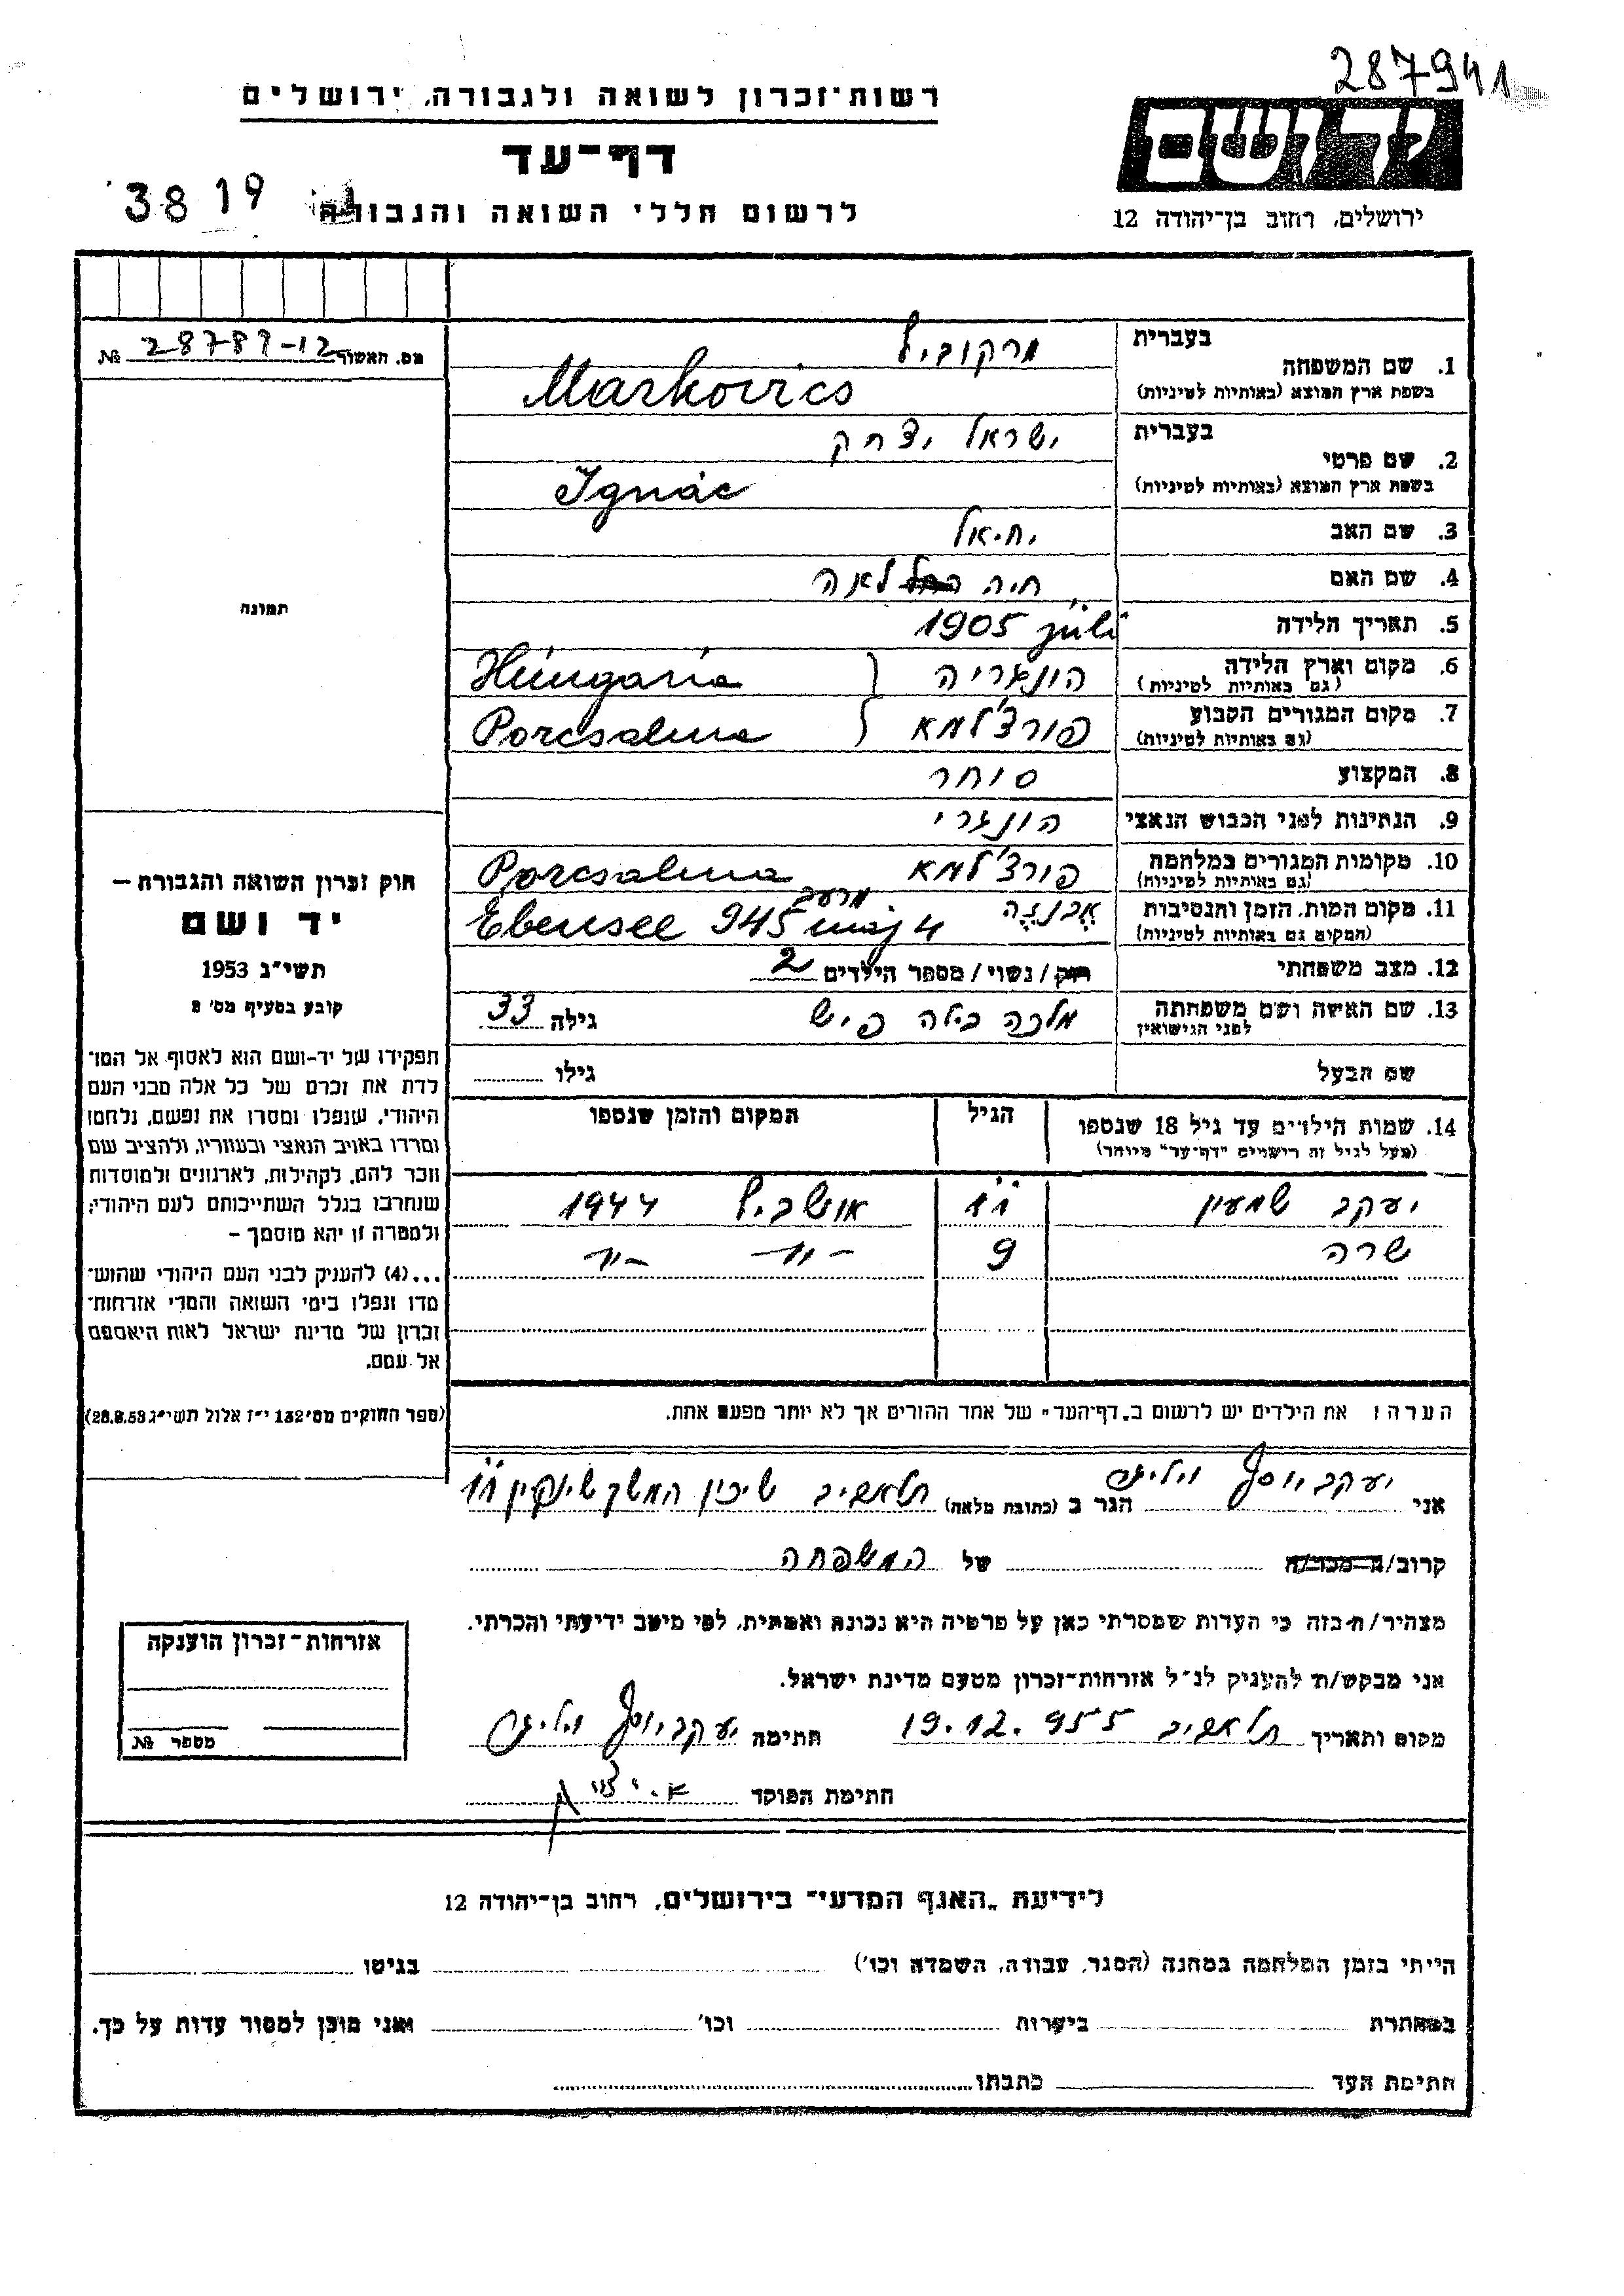 287941
רשות־זכרון לשואה ולגבורה, ירושלים
דף־עד
לרשום חללי השואה והגבורה
3819
יד ושם
ירושלים, רחוב בן־יהודה 12
מס. האשור 28789-12 №
תמונה
בעברית
1. שם המשפחה
(בשפת ארץ המוצא (באותיות לטיניות
מרקוביץ
Markovics
בעברית
2. שם פרטי
(בשפת ארץ המוצא (באותיות לטיניות
ישראל יצחק
Ignác
3. שם האב יחיאל
4. שם האם חיה לאה
5. תאריך הלידה 1905 júli
6. מקום וארץ הלידה
(גם באותיות לטיניות)
הונגריה Hungaria
7. מקום המגורים הקבוע
(גם באותיות לטיניות)
פורצ'למא Porcsalma
8. המקצוע סוחר
9. הנתינות לפני הכבוש הנאצי הונגרי
10. מקומות המגורים במלחמה
(גם באותיות לטיניות)
פורצ'למא Porcsalma
11. מקום המות, הזמן והנסיבות
(המקום גם באותיות לטיניות)
אבנזה Ebensee 945 máj 4 מרעב
12. מצב משפחתי רוק / נשוי / מספר הילדים 2
13. שם האשה ושם משפחתה
לפני הנישואין
מלכה בילה פיש גילה 33
שם הבעל גילו
14. שמות הילדים עד גיל 18 שנספו
(מעל לגיל זה רושמים "דף־עד" מיוחד)
הגיל
המקום והזמן שנספו
יעקב שמעון 11 אושביץ 1944
שרה 9 -"- -"-
הערה: את הילדים יש לרשום ב„דף־העד" של אחד ההורים אך לא יותר מפעם אחת.
חוק זכרון השואה והגבורה –
יד ושם
תשי"ג 1953
קובע בסעיף מס' 2
תפקידו של יד-ושם הוא לאסוף אל המו־
לדת את זכרם של כל אלה מבני העם
היהודי, שנפלו ומסרו את נפשם, נלחמו
ומרדו באויב הנאצי ובעוזריו, ולהציב שם
וזכר להם, לקהילות, לארגונים ולמוסדות
שנחרבו בגלל השתייכותם לעם היהודי;
ולמטרה זו יהא מוסמך –
...(4) להעניק לבני העם היהודי שהוש־
מדו ונפלו בימי השואה והמרי אזרחות־
זכרון של מדינת ישראל לאות היאספם
אל עמם.
(ספר החוקים מס' 132 י"ז אלול תשי"ג 28.8.53)
אני יעקב יוסף הגר ב (כתובת מלאה) תל אביב שיכון המשק שינקין 11
קרוב/ה מכר/ה של המשפחה
מצהיר/ה בזה כי העדות שמסרתי כאן על פרטיה היא נכונה ואמתית, לפי מיטב ידיעתי והכרתי.
אני מבקש/ת להעניק לנ"ל אזרחות־זכרון מטעם מדינת ישראל.
מקום ותאריך תל אביב 19.12.955 חתימה יעקב יוסף
חתימת הפוקד
אזרחות־זכרון הוענקה
מספר №
לידיעת „האגף המדעי" בירושלים, רחוב בן־יהודה 12
הייתי בזמן המלחמה במחנה (הסגר, עבודה, השמדה וכו') בגיטו
במחתרת ביערות וכו' ואני מוכן למסור עדות על כך.
חתימת העד כתבתו